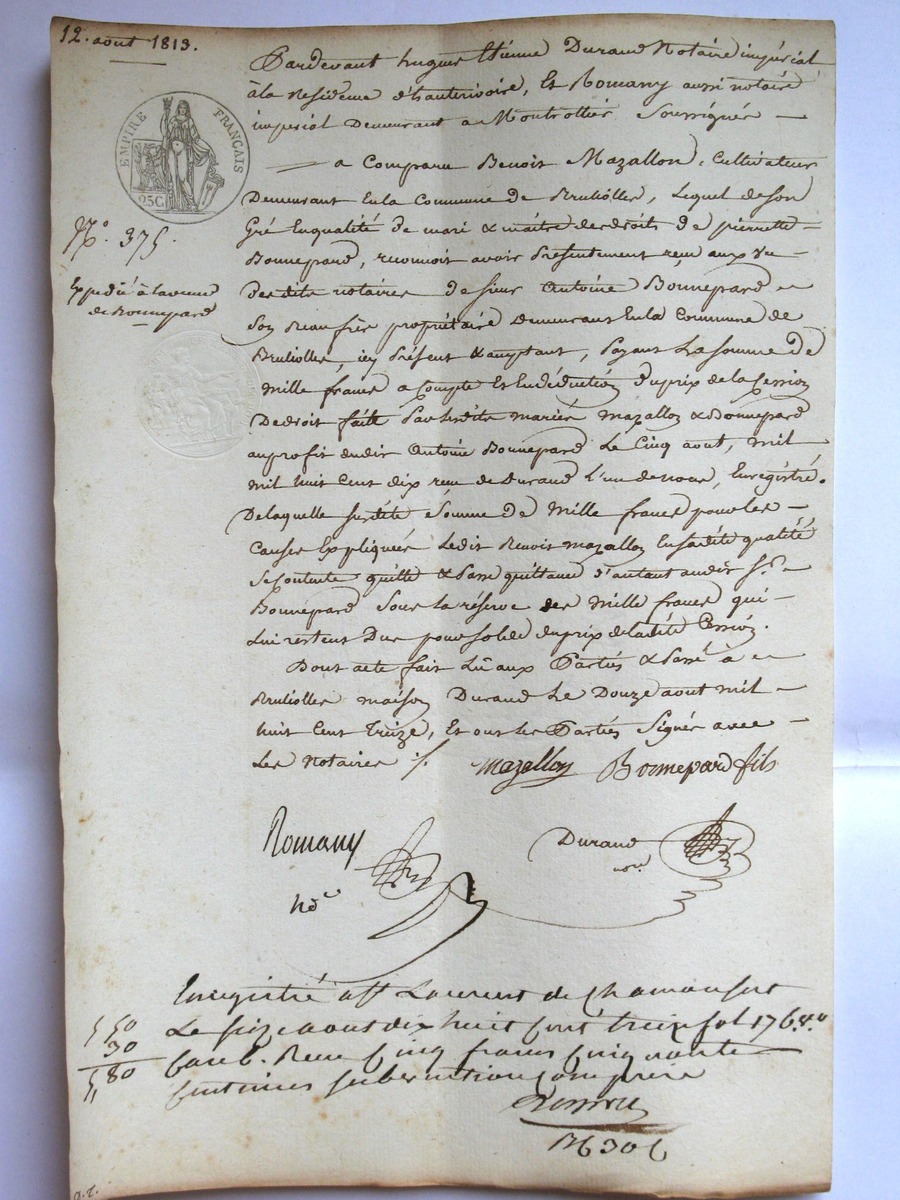 12. aout 1813.
EMPIRE FRANÇAIS
25C.
N.º 375.
Expedié à la veuve
de Bonnepard
Pardevant hugues Etienne Durand Notaire impérial
à la Residence d'hauterivoire, Et Romany aussi notaire
impérial Demeurant a Montrottier Soussignés —
— a Comparu Benoit Mazallon, Cultivateur
Demeurant En la Commune de Bruliolles, Lequel de son
Gré En qualité de mari & maitre des droits de pierrette
Bonnepard, reconnoit avoir Présentement reçu aux vu —
Desdits notaires de sieur Antoine Bonnepard
Son Beau frère propriétaire Demeurant En la Commune de
Brulioles, icy Présent & acceptant, Payant La somme de
Mille francs a Compte Et En déduction du prix de la Cession
De droit faite Par lesdits mariés Mazallon & Bonnepard
au profit dudit Antoine Bonnepard Le Cinq aout, mil
mil huit Cent dix reçue de Durand L'un de nous, Enregistré.
De laquelle susdite Somme de Mille francs pour les —
Causes Expliquées Ledit Benoit mazallon En sadite qualité
Se Contente quitte & Passe quittance d'autant audit S.r
Bonnepard Sous la réserve des Mille francs qui -
Lui restent Dus pour solde du prix de ladite Cession.
Dont acte fait Lû aux Parties & Passé à
Brulioles maison Durand Le Douze aout mil —
huit Cent Treize, Et ont les Parties Signés avec —
Les Notaires ./.
Mazallon Bonnepard fils
Romany
Durand
not.re
N.re
Enregistré à St Laurent de Chamousset
Le seize aout dix huit Cent treize fol 176
Case 6. Reçu Cinq francs Cinquante
Centimes subvention Comprise
5 50
30
5, 80